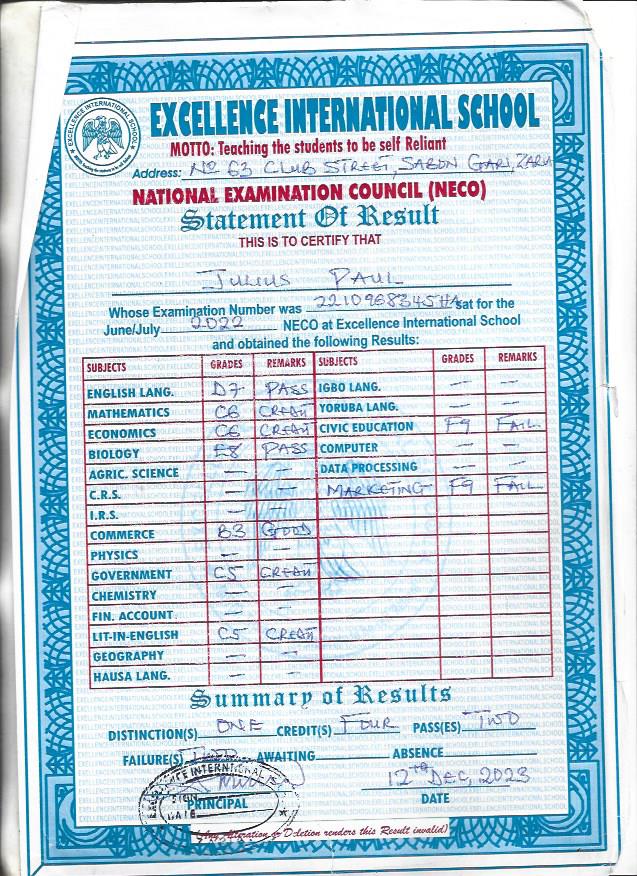 EXCELLENCE INTERNATIONAL SCHOOL
EXCELLENCE INTERNATIONAL SCHOOL
MOTTO: Teaching the students to be self Reliant
Address: No 63 CLUB STREET, SABON GARI, ZARIA
NATIONAL EXAMINATION COUNCIL (NECO)
Statement Of Result
THIS IS TO CERTIFY THAT
JULIUS PAUL
Whose Examination Number was 2210968345HA sat for the
June/July 2022 NECO at Excellence International School
and obtained the following Results:
SUBJECTS GRADES REMARKS SUBJECTS GRADES REMARKS
ENGLISH LANG. D7 PASS IGBO LANG. — —
MATHEMATICS C6 CREDIT YORUBA LANG. — —
ECONOMICS C6 CREDIT CIVIC EDUCATION F9 FAIL
BIOLOGY E8 PASS COMPUTER — —
AGRIC. SCIENCE — — DATA PROCESSING — —
C.R.S. — — MARKETING F9 FAIL
I.R.S. — —
COMMERCE B3 GOOD
PHYSICS — —
GOVERNMENT C5 CREDIT
CHEMISTRY — —
FIN. ACCOUNT — —
LIT-IN-ENGLISH C5 CREDIT
GEOGRAPHY — —
HAUSA LANG. — —
Summary of Results
DISTINCTION(S) ONE CREDIT(S) FOUR PASS(ES) TWO
FAILURE(S) TWO AWAITING ABSENCE
12th DEC, 2023
PRINCIPAL DATE
EXCELLENCE INTERNATIONAL
SIGN
DATE
(Any Alteration or Deletion renders this Result invalid)